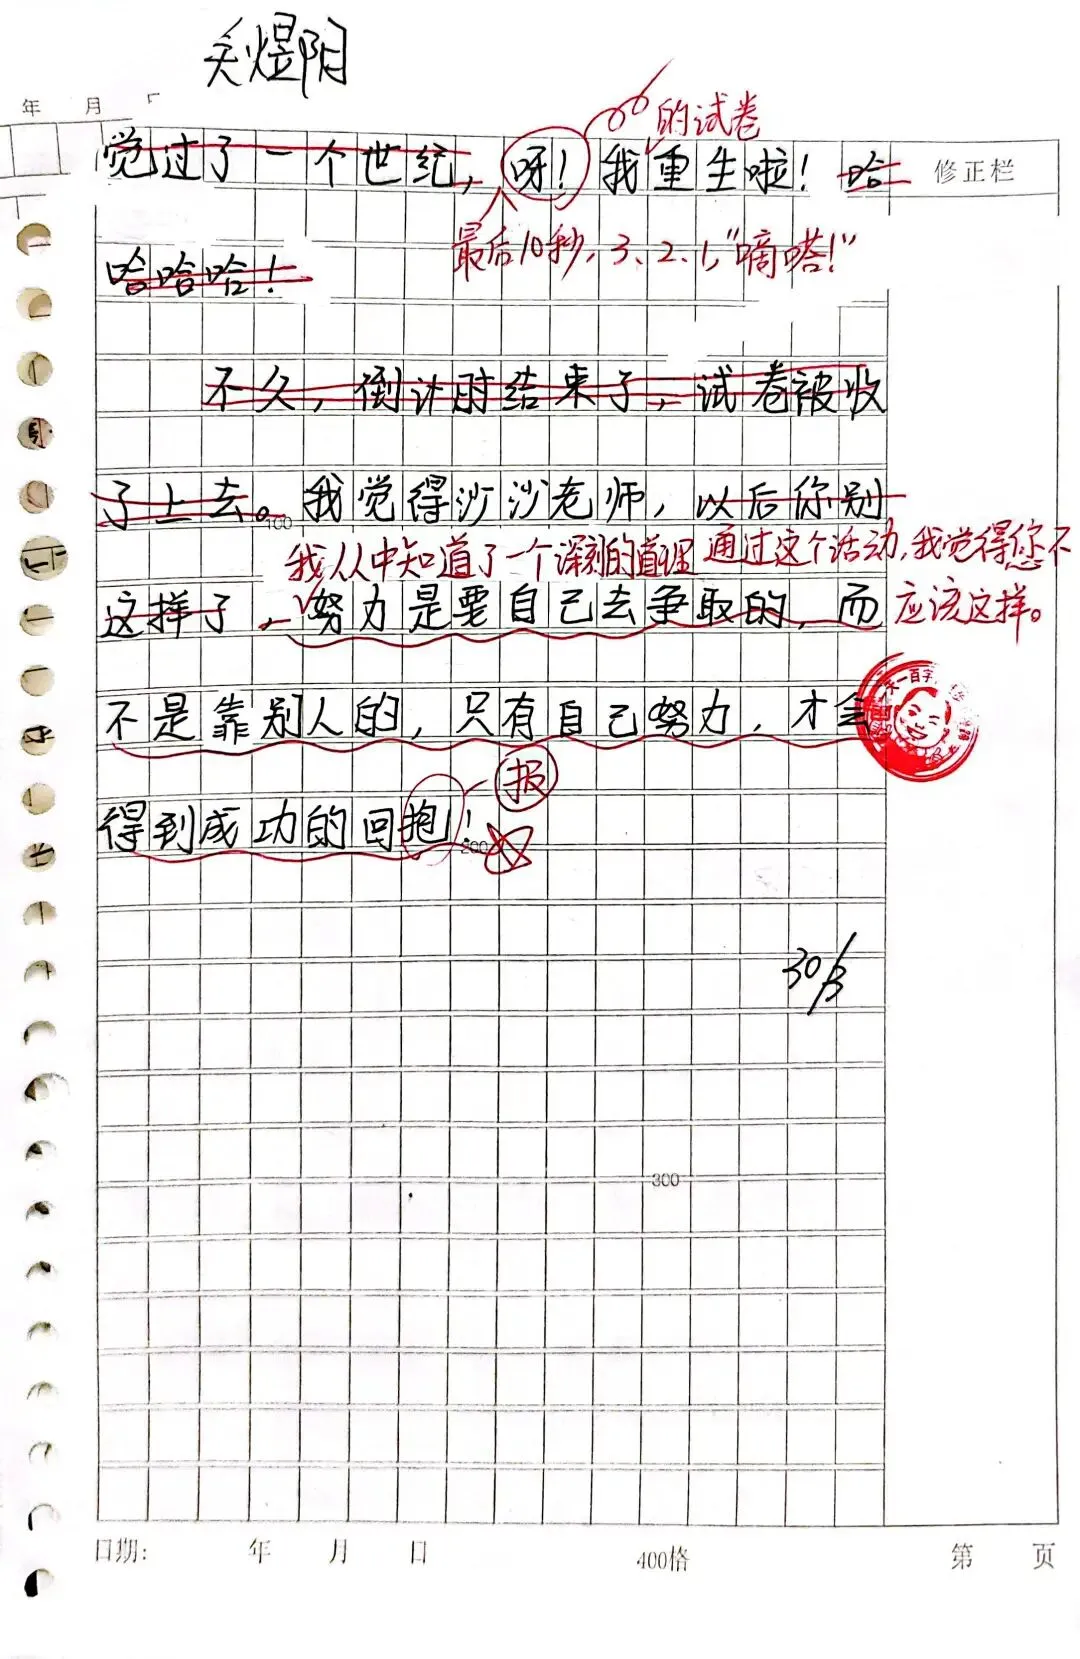 关煜阳
年 月
的试卷
觉过了一个世纪，呀！我重生啦！哈
修正栏
最后10秒，3、2、1，"嘀嗒！"
哈哈哈！
不久，倒计时结束了，试卷被收
了上去。我觉得沙沙老师，以后你别
100
我从中知道了一个深刻的道理 通过这个活动，我觉得您不
这样了，努力是要自己去争取的，而
应该这样。
不是靠别人的，只有自己努力，才会
报
得到成功的回抱！
200
30/3
300
日期： 年 月 日 400格 第 页